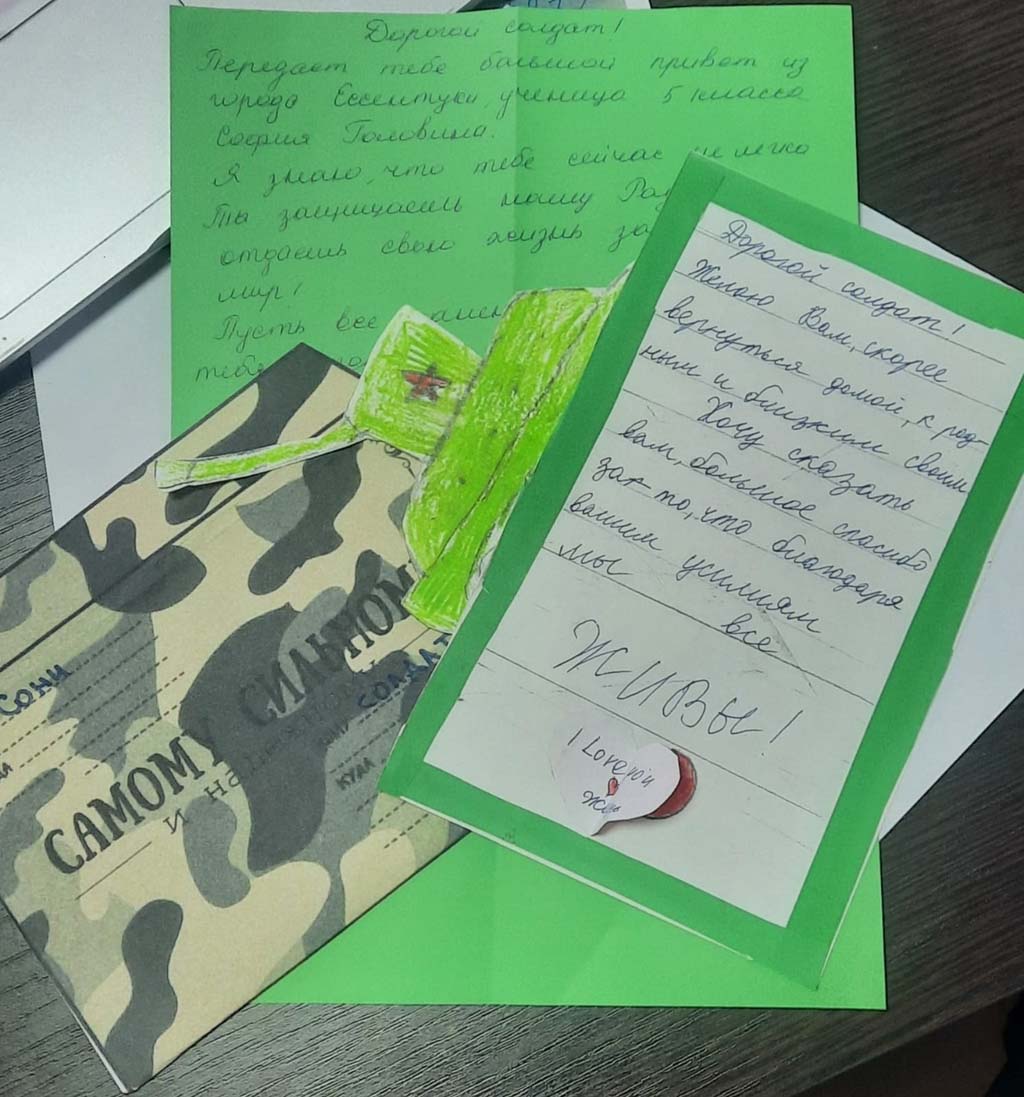 Дорогой солдат!
Передает тебе большой привет из
города Ессентуки, ученица 5 класса
София Головина.
Я знаю, что тебе сейчас не легко
Ты защищаешь нашу
отдаешь свою жизнь за
мир!
Пусть все
тебе
Дорогой солдат!
Желаю Вам, скорее
вернуться домой, к род-
ным и близким своим
Хочу сказать
вам, большое спасибо
за то, что благодаря
вашим усилиям
мы все
ЖИВЫ!
I Love
Сони
САМОМУ СИЛЬНОМ
и
СОЛДАТ
КУДА